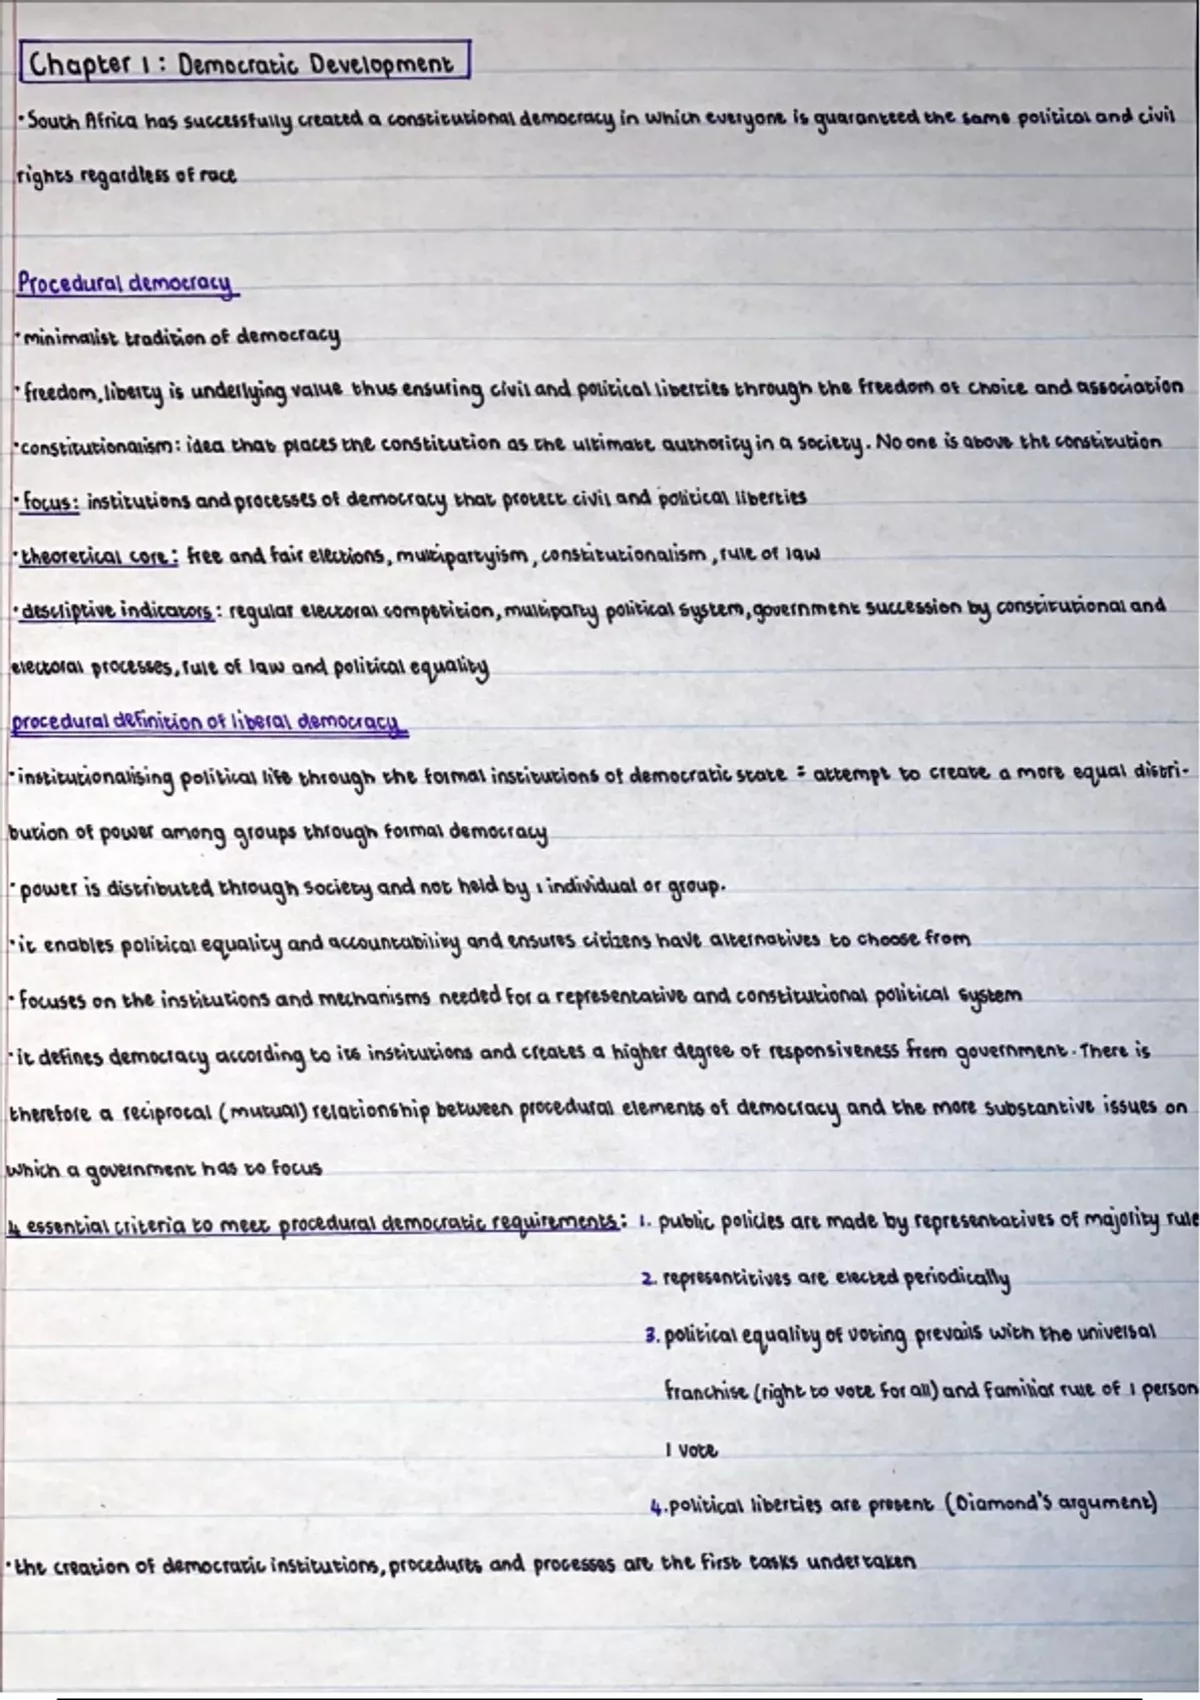 Chapter 1: Democratic Development
• South Africa has successfully created a constitutional democracy in which everyone is guaranteed the same political and civil
rights regardless of race
Procedural democracy
• minimalist tradition of democracy
• freedom, liberty is underlying value thus ensuring civil and political liberties through the freedom of choice and association
• constitutionalism: idea that places the constitution as the ultimate authority in a society. No one is above the constitution
• focus: institutions and processes of democracy that protect civil and political liberties
• theoretical core: free and fair elections, multipartyism, constitutionalism, rule of law
• descriptive indicators: regular electoral competition, multiparty political system, government succession by constitutional and
electoral processes, rule of law and political equality
procedural definition of liberal democracy
• institutionalising political life through the formal institutions of democratic state = attempt to create a more equal distri-
bution of power among groups through formal democracy
• power is distributed through society and not held by 1 individual or group.
• it enables political equality and accountability and ensures citizens have alternatives to choose from
• focuses on the institutions and mechanisms needed for a representative and constitutional political system
• it defines democracy according to its institutions and creates a higher degree of responsiveness from government. There is
therefore a reciprocal (mutual) relationship between procedural elements of democracy and the more substantive issues on
which a government has to focus
4 essential criteria to meet procedural democratic requirements: 1. public policies are made by representatives of majority rule
2. representitives are elected periodically
3. political equality of voting prevails with the universal
franchise (right to vote for all) and familiar rule of 1 person
1 vote
4. political liberties are present (Diamond's argument)
• the creation of democratic institutions, procedures and processes are the first tasks undertaken